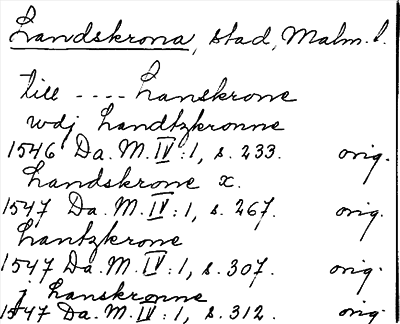 Landskrona, stad, Malm. l.
till ---- Lanskrone
wdj Landtzkronne
1546 Da. M. IV: 1, s. 233. orig.
Landskrone x.
1547 Da. M. IV: 1, s. 267. orig.
Lantzkrone
1547 Da. M. IV: 1, s. 307. orig.
j Lanskronne
1547 Da. M. IV: 1, s. 312. orig.